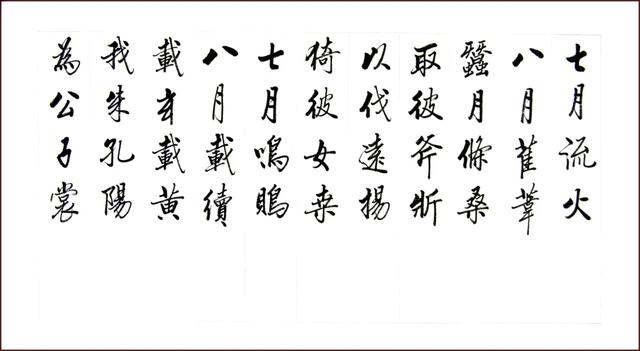 七月流火
八月萑葦
蠶月條桑
取彼斧斨
以伐遠揚
猗彼女桑
七月鳴鵙
八月載績
載玄載黃
我朱孔陽
為公子裳